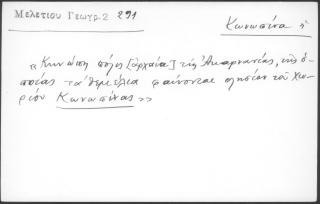 Μελετίου Γεωγρ. 2 291
Κωνωπίνα ἡ
« Κυνώπη πόλις [ἀρχαία] τῆς Ἀκαρνανίας, τῆς ὁ-
ποίας τὰ θεμέλια φαίνονται πλησίον τοῦ Χω-
ρίου Κωνωπίνας »